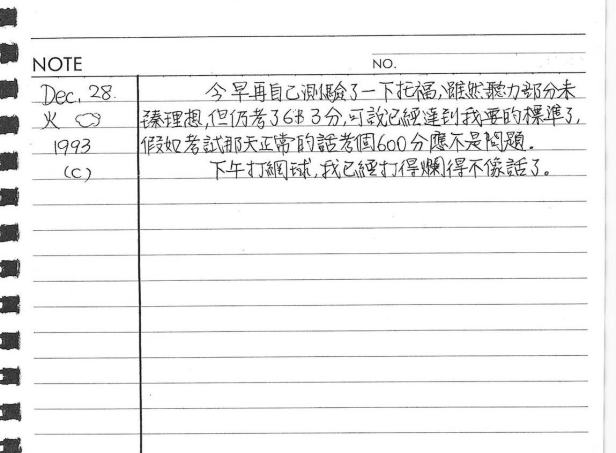 NOTE
NO.
Dec. 28.
火
1993
(C)
今早再自己測驗了一下托福,雖然聽力部分未
臻理想,但仍考了613分,可說已經達到我要的標準了,
假如考試那天正常的話考個600分應不是問題.
下午打網球,我已經打得爛得不像話了。